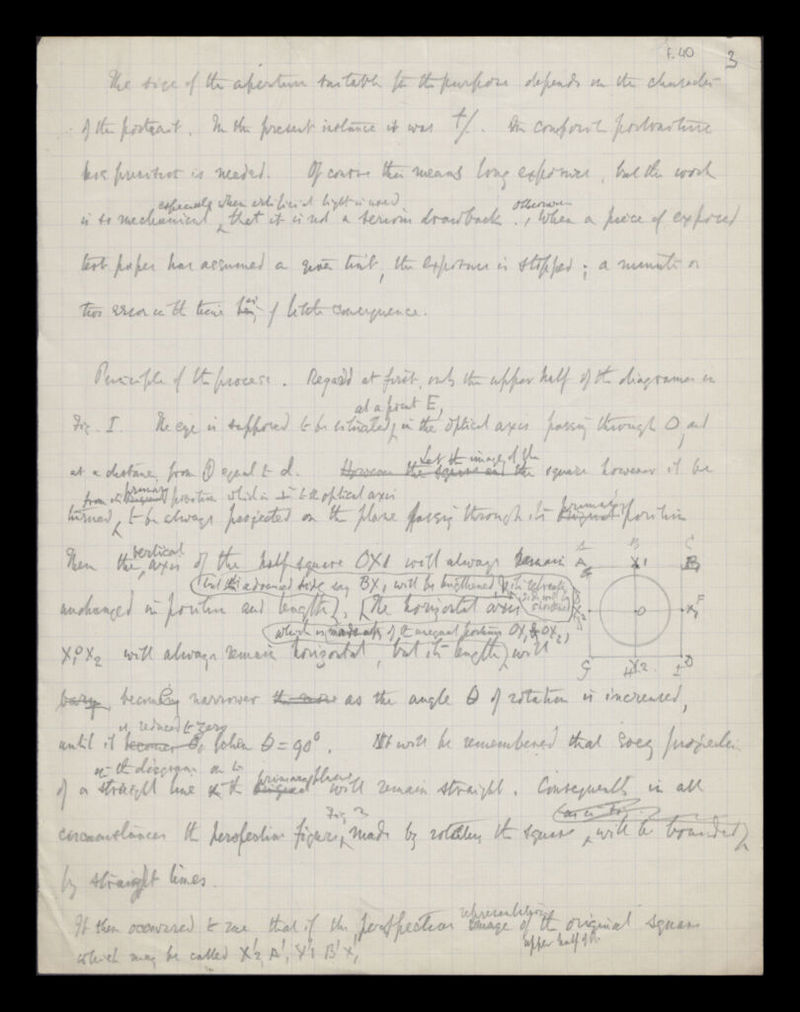 f.40 3
The size of the aperture suitable for the purpose depends on the character
of the portrait. In the present instance it was f/. In composite portraiture
less precision is needed. Of course this means long exposure, but the work
especially when artificial light is used
is so mechanical, that it is not a serious drawback. When a piece of exposed
test paper has assumed a given tint, the exposure is stopped; a minute or
two error in the time being of little consequence.
Principle of the process. Regard at first, only the upper half of the diagrams in
at a point E,
Fig. I. The eye is supposed to be situated, in the optical axis passing through O, and
at a distance from O equal to d. Let the image of the
square however it be
from its primary position which is ⊥ to the optical axis
turned, to be always projected on the plane passing through its primary position
vertical
Then the axis of the half square OX1 will always remain
but the advanced side say BX, will be lengthened,
unchanged in position and length, the horizontal axis
which is made up of the unequal portions OX, & OX2,
X1OX2 will always remain horizontal, but its length, will
vary, becoming narrower as the angle θ of rotation is increased,
is reduced to zero
until it becomes 0, when θ = 90°. It will be remembered that every projection
on the diagram
primary plane
of a straight line on the original will remain straight. Consequently in all
Fig 2
circumstances the perspective figure, made by rotating the square, will be bounded
by straight lines.
representation
It then occurred to me that if the perspective image of the original square
upper half of the
which may be called X'2 A', X'1 B' X'1
A X1 B
O
F
G H X2 D